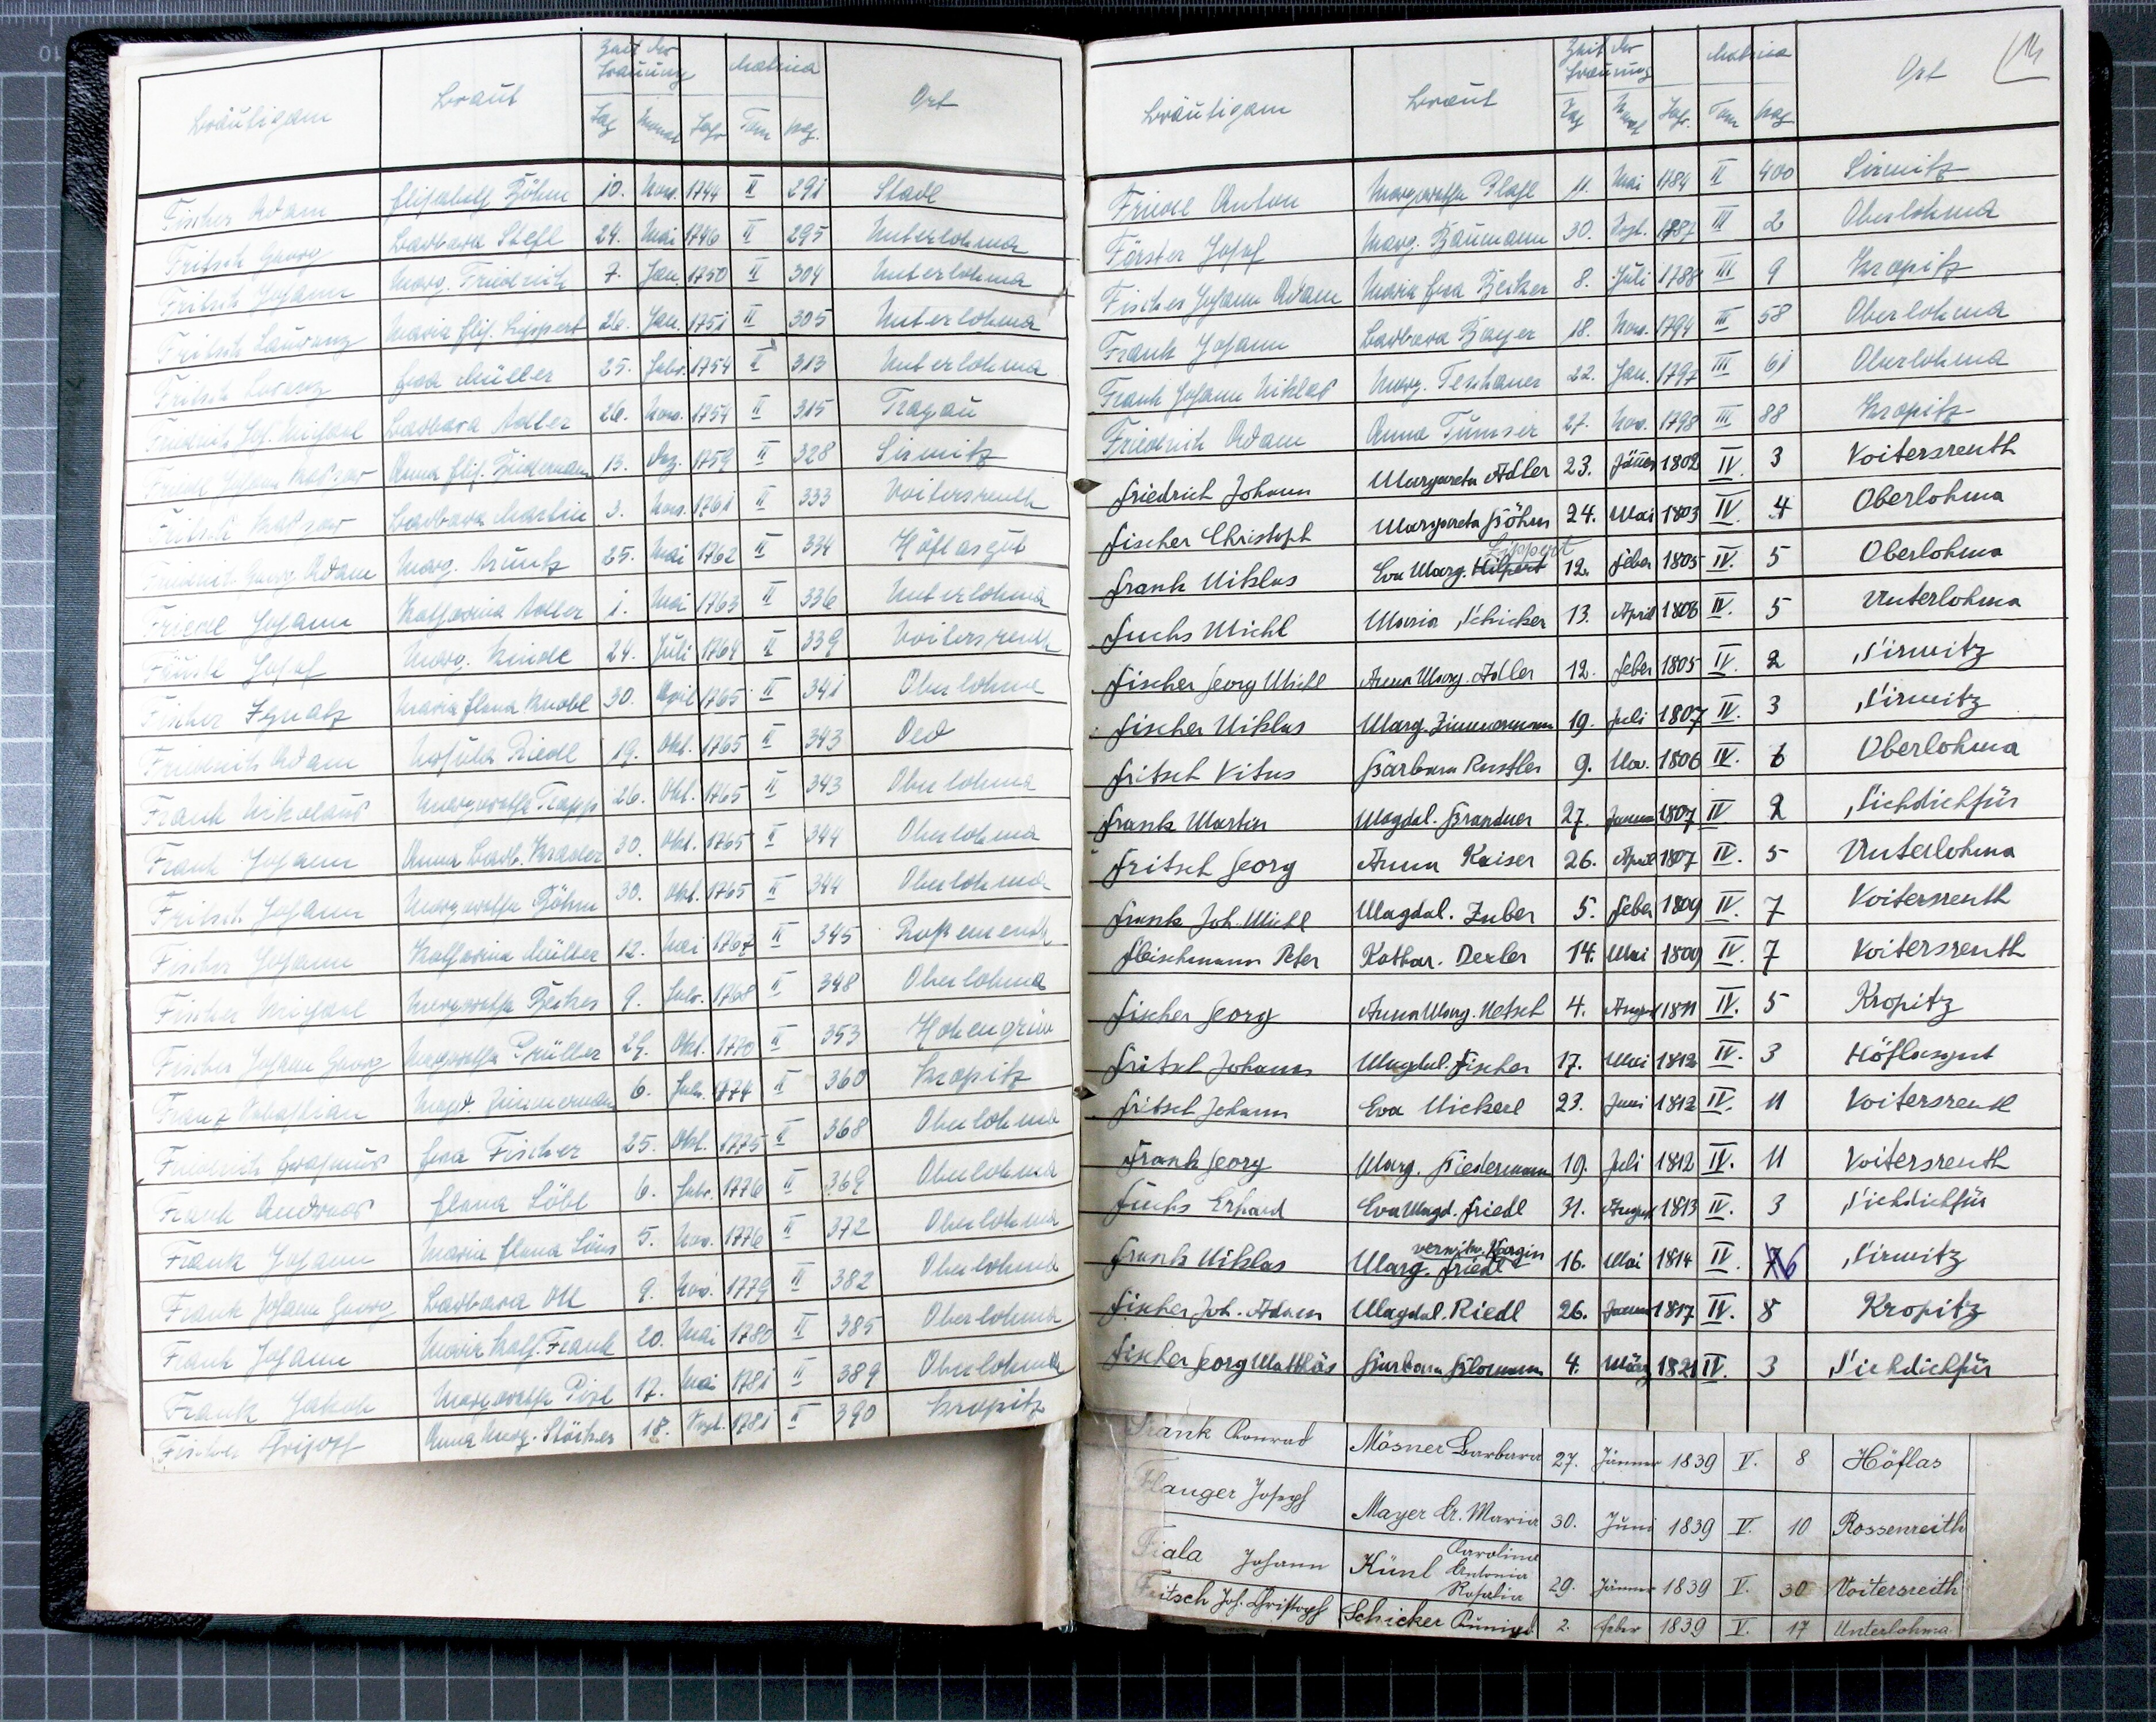 Bräutigam Braut Zeit der Trauung Matrica Ort
Tag Monat Jahr Tom pag.
Fischer Adam Elisabeth Böhm 10. Nov. 1744 II 291 Stadl
Fritsch Georg Barbara Stefl 24. Mai 1746 II 295 Unterlohma
Fritsch Johann Marg. Friedrich 7. Jan. 1750 II 304 Unterlohma
Fritsch Laurenz Maria Elis. Lippert 26. Jan. 1751 II 305 Unterlohma
Fritsch Lorenz Eva Müller 25. Febr. 1754 II 313 Unterlohma
Friedrich Joh. Michael Barbara Adler 26. Nov. 1754 II 315 Tragau
Friedl Johann Kaspar Anna Elis. Biedermann 13. Dez. 1759 II 328 Sirmitz
Fritsch Kaspar Barbara Martin 3. Nov. 1761 II 333 Voitersreuth
Friedrich Georg Adam Marg. 25. Mai 1762 II 334 Höflasgut
Friedl Johann Katharina Adler 1. Mai 1763 II 336 Unterlohma
Josef Marg. 24. Juli 1764 II 339 Voitersreuth
Fischer Ignatz Maria Elena Knobl 30. April 1765 II 341 Oberlohma
Friedrich Adam Ursula Riedl 19. Okt. 1765 II 343 Oed
Frank Nikolaus Margaretha Trapp 26. Okt. 1765 II 343 Oberlohma
Frank Johann Anna Barb. 30. Okt. 1765 II 344 Oberlohma
Fritsch Johann Margaretha Böhm 30. Okt. 1765 II 344 Oberlohma
Fischer Johann Katharina Müller 12. Mai 1767 II 345 Roßenreuth
Fischer Michael Margaretha Becker 9. Febr. 1768 II 348 Oberlohma
Fischer Johann Georg Margaretha Prüller 29. Okt. 1770 II 353 Hohengrün
Franz Sebastian Magd. Zimmermann 6. Febr. 1774 II 360 Kropitz
Friedrich Erasmus Eva Fischer 25. Okt. 1775 II 368 Oberlohma
Frank Andreas Elena Löbl 6. Febr. 1776 II 369 Oberlohma
Frank Johann Maria Elena 5. Nov. 1776 II 372 Oberlohma
Frank Johann Georg Barbara Ott 9. Nov. 1779 II 382 Oberlohma
Frank Johann Maria Kath. Frank 20. Mai 1780 II 385 Oberlohma
Frank Jakob Margaretha 17. Mai 1781 II 389 Oberlohma
Fischer Christoph Anna Marg. 18. Sept. 1781 II 390 Kropitz
Bräutigam Braut Zeit der Trauung Matrica Ort
Tag Monat Jahr. Tom pag
Friedl Anton Margaretha 11. Mai 1784 II 400 Sirmitz
Förster Josef Marg. Baumann 30. Sept. 1787 III 2 Oberlohma
Fischer Johann Adam Maria Eva Becker 8. Juli 1788 III 9 Kropitz
Frank Johann Barbara Bayer 18. Nov. 1794 III 58 Oberlohma
Frank Johann Niklas Marg. Teschauer 22. Jan. 1797 III 61 Oberlohma
Friedrich Adam Anna Tumser 27. Nov. 1798 III 88 Kropitz
Friedrich Johann Margareta Adler 23. Jänner 1802 IV. 3 Voitersreuth
Fischer Christoph Margareta Böhm 24. Mai 1803 IV. 4 Oberlohma
Lippert
Frank Niklas Eva Marg. Hilpert 12. Feber 1805 IV. 5 Oberlohma
Fuchs Michl Maria Schicker 13. April 1806 IV. 5 Unterlohma
Fischer Georg Michl Anna Marg. Adler 12. Feber 1805 IV. 2 Sirmitz
Fischer Niklas Marg. Zimmermann 19. Juli 1807 IV. 3 Sirmitz
Fritsch Vitus Barbara Rustler 9. Nov. 1806 IV. 6 Oberlohma
Frank Martin Magdal. Brandner 27. Jänner 1807 IV 2 Sichdichfür
Fritsch Georg Anna Kaiser 26. April 1807 IV. 5 Unterlohma
Frank Joh. Michl Magdal. Zuber 5. Feber 1809 IV. 7 Voitersreuth
Fleischmann Peter Kathar. Dexler 14. Mai 1809 IV. 7 Voitersreuth
Fischer Georg Anna Marg. Netsch 4. August 1811 IV. 5 Kropitz
Fritsch Johann Magdal. Fischer 17. Mai 1812 IV. 3 Höflasgut
Fritsch Johann Eva Nickerl 23. Juni 1812 IV. 11 Voitersreut
Frank Georg Marg. Biedermann 19. Juli 1812 IV. 11 Voitersreuth
Fuchs Erhard Eva Magd. Friedl 31. August 1813 IV. 3 Sichdichfür
verwitw.
Frank Niklas Marg. Friedl 16. Mai 1814 IV. 6 Sirmitz
Fischer Joh. Adam Magdal. Riedl 26. Jänner 1817 IV. 8 Kropitz
Fischer Georg Matthäs Barbara 4. März 1821 IV. 3 Sichdichfür
Frank Konrad Mösner Barbara 27. Jänner 1839 V. 8 Höflas
Flauger Joseph Mayer Maria 30. Juni 1839 V. 10 Rossenreith
Fiala Johann Künl Carolina Antonia Rosalia 29. Jänner 1839 V. 30 Voitersreith
Fritsch Joh. Christoph Schicker Kunigd. 2. Feber 1839 V. 17 Unterlohma